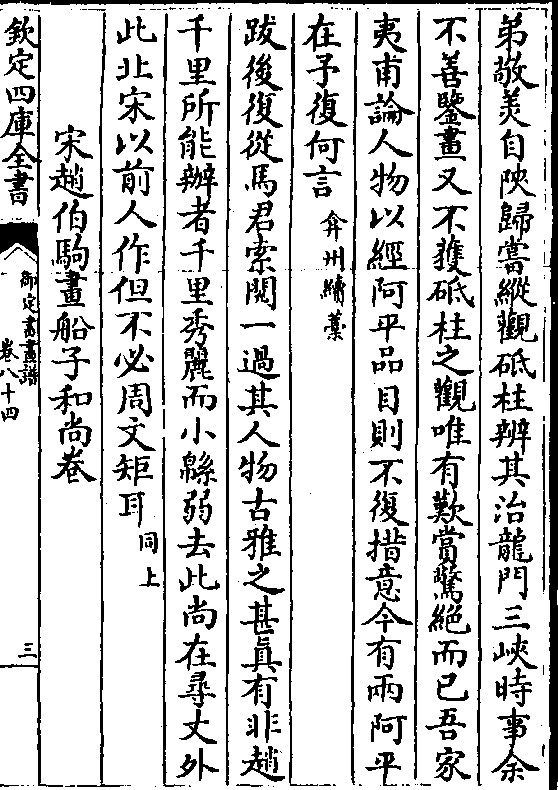 弟敬美自陜歸嘗縱觀砥柱辨其治龍門三峽時事余
不善鑒畫又不獲砥柱之觀唯有歎賞驚絕而已吾家
夷甫論人物以經阿平品目則不復措意今有兩阿平
在予復何言 弇州續藁
跋後復從馬君索閱一過其人物古雅之甚真有非趙
千里所能辦者千里秀麗而小緜弱去此尚在尋丈外
此北宋以前人作但不必周文矩耳 同上
宋趙伯駒畫船子和尚卷
欽定四庫全書
御定書畫譜
卷八十四
三